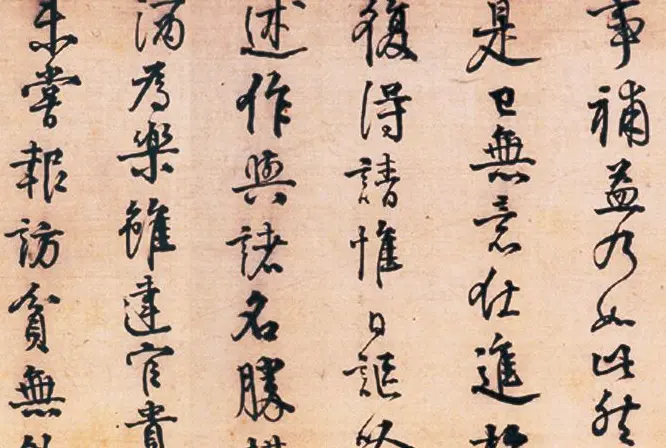 事補益乃如此然
是已無意仕進
復得請惟日謳
述作與諸名勝
酒為樂雖達官貴
未嘗報訪貧無